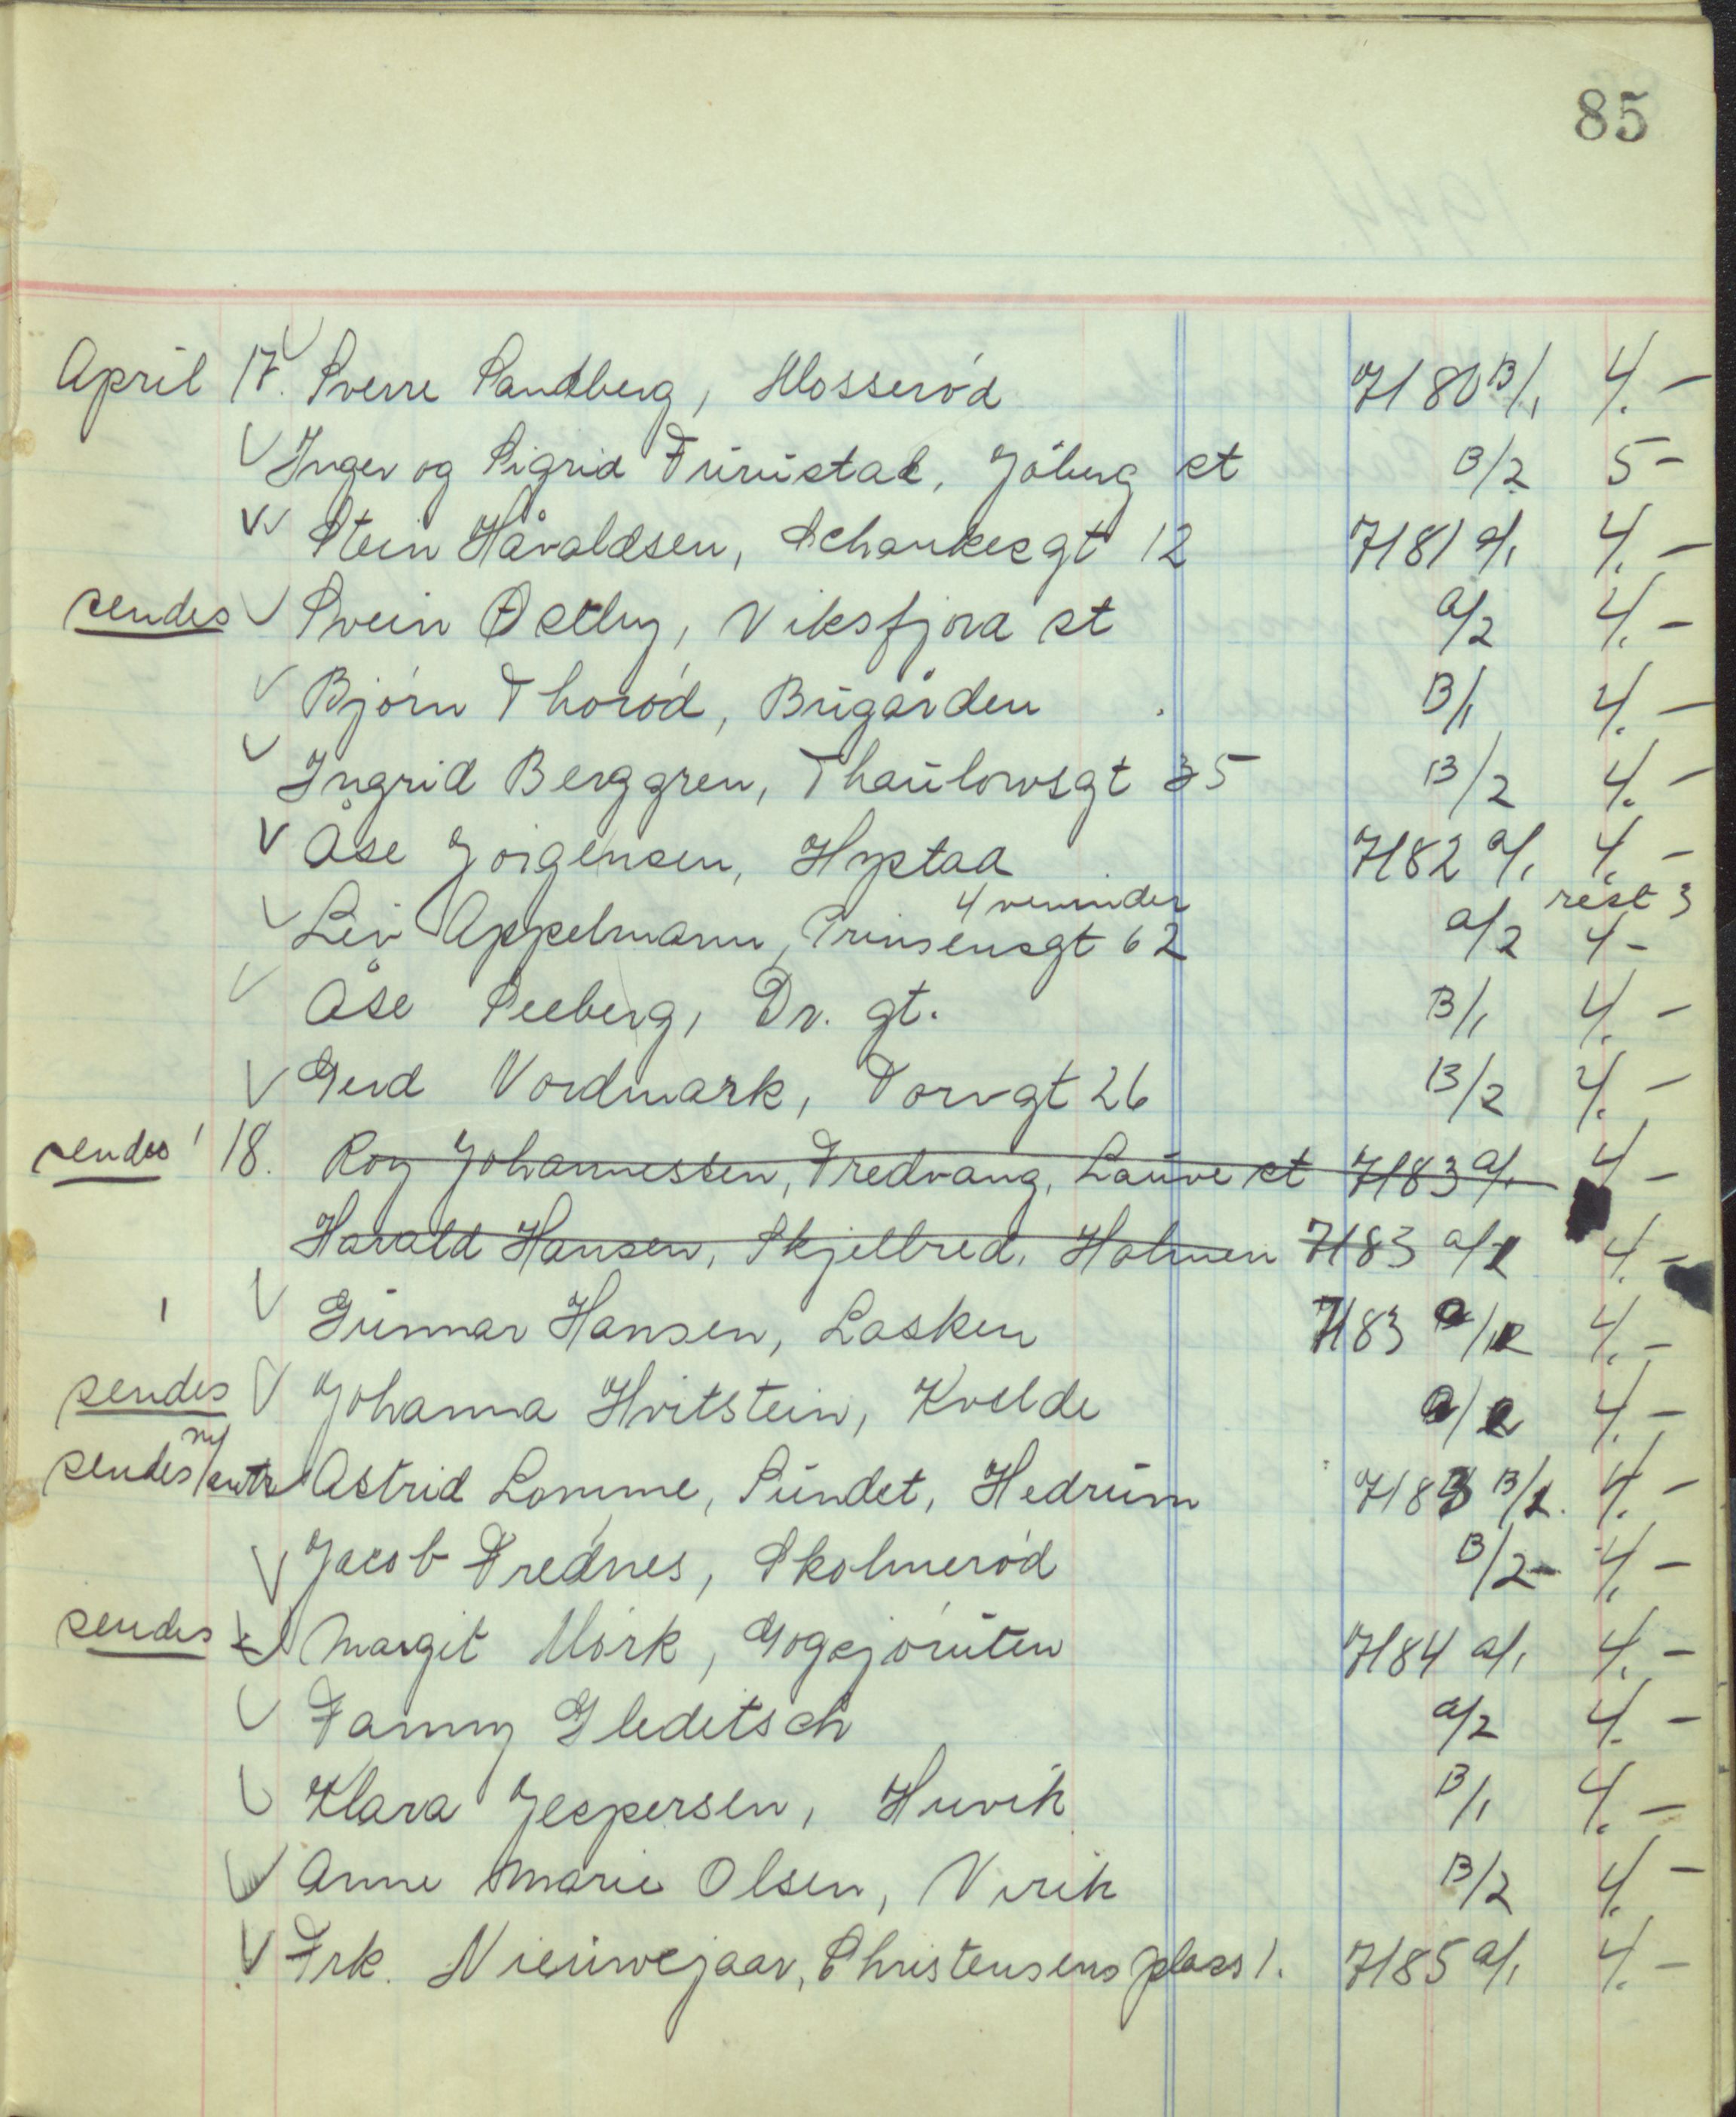 85
April 17. Sverre Sandberg, Mosserød 7180 B/1 4.-
Inger og Sigrid Furustad, Jåberg st B/2 5-
Stein Håvaldsen, Schankesgt 12 7181 a/1 4.-
sendes Svein Østby, Viksfjord st a/2 4.-
Bjørn Thorød, Bugården B/1 4.-
Ingrid Berggren, Thaulowsgt 35 B/2 4.-
Åse Jørgensen, Hystad 7182 a/1 4.-
4 veninder rest 3
Liv Appelmann, Prinsensgt 62 a/2 4-
Åse Seeberg, Dr. gt. B/1 4.-
Gerd Nordmark, Torvgt 26 B/2 4.-
sendes 18. Roy Johannessen, Fredvang, Lauve st 7183 a/1 4-
Harald Hansen, Skjelbred, Holmen 7183 a/1 4.-
Gunnar Hansen, Lasken 7183 a/1 4.-
sendes Johanna Hvitstein, Kvelde a/2 4.-
ny
sendes Astrid Lomme, Sundet, Hedrum 7183 B/1. 4.-
Jacob Frednes, Skolmerød B/2 4.-
sendes Margit Mørk, Gogsjøruten 7184 a/1 4.-
Fanny Gleditsch a/2 4.-
Klara Jespersen, Huvik B/1 4.-
Anne Marie Olsen, Virik B/2 4.-
Frk. Nieuwejaar, Christensens plass 1. 7185 a/1 4.-